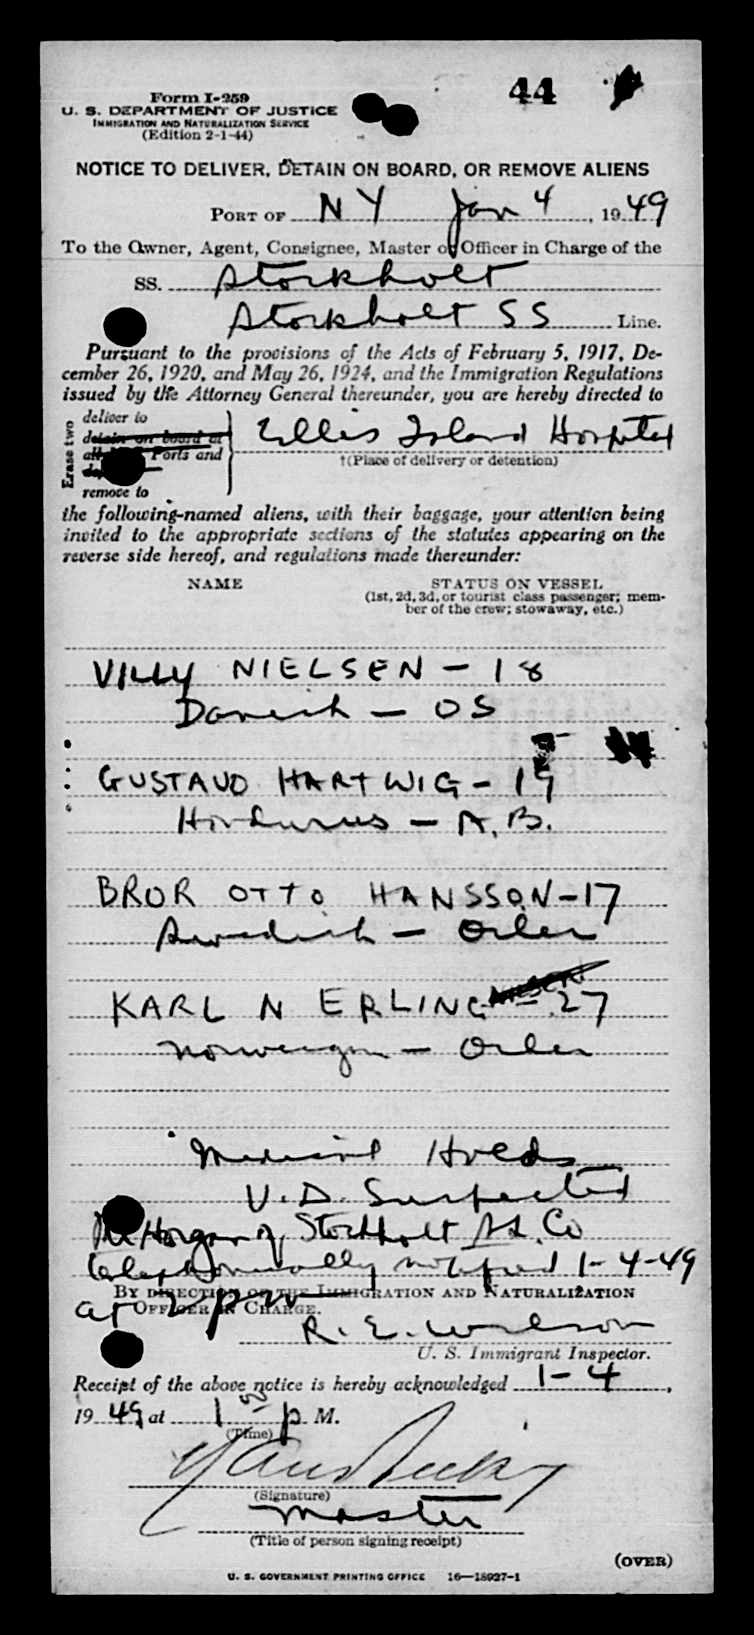 44
Form I-259
U. S. DEPARTMENT OF JUSTICE
IMMIGRATION AND NATURALIZATION SERVICE
(Edition 2-1-44)
NOTICE TO DELIVER, DETAIN ON BOARD, OR REMOVE ALIENS
PORT OF N Y Jan 4, 1949
To the Owner, Agent, Consignee, Master or Officer in Charge of the
SS. Stockholt
Stockholt SS Line.
Pursuant to the provisions of the Acts of February 5, 1917, De-
cember 26, 1920, and May 26, 1924, and the Immigration Regulations
issued by the Attorney General thereunder, you are hereby directed to
Erase two
deliver to
detain on board at
Ports and
remove to
Ellis Island Hospital
†(Place of delivery or detention)
the following-named aliens, with their baggage, your attention being
invited to the appropriate sections of the statutes appearing on the
reverse side hereof, and regulations made thereunder:
NAME STATUS ON VESSEL
(1st, 2d, 3d, or tourist class passenger; mem-
ber of the crew; stowaway, etc.)
VILLY NIELSEN - 18
Danish - OS
GUSTAVO HARTWIG - 19
Honduras - A.B.
BROR OTTO HANSSON - 17
Swedish - Oiler
KARL N ERLING - 27
Norwegian - Oiler
Medical Holds
V.D. Suspected
Mr Horgan of Stockholt SS. Co
telephonically notified 1-4-49
at 2 pm
BY DIRECTION OF THE IMMIGRATION AND NATURALIZATION
OFFICER IN CHARGE.
R. E. Wilson
U. S. Immigrant Inspector.
Receipt of the above notice is hereby acknowledged 1-4,
1949 at 1 00 p M.
(Time)
(Signature)
Master
(Title of person signing receipt)
(OVER)
U. S. GOVERNMENT PRINTING OFFICE 16—18927-1